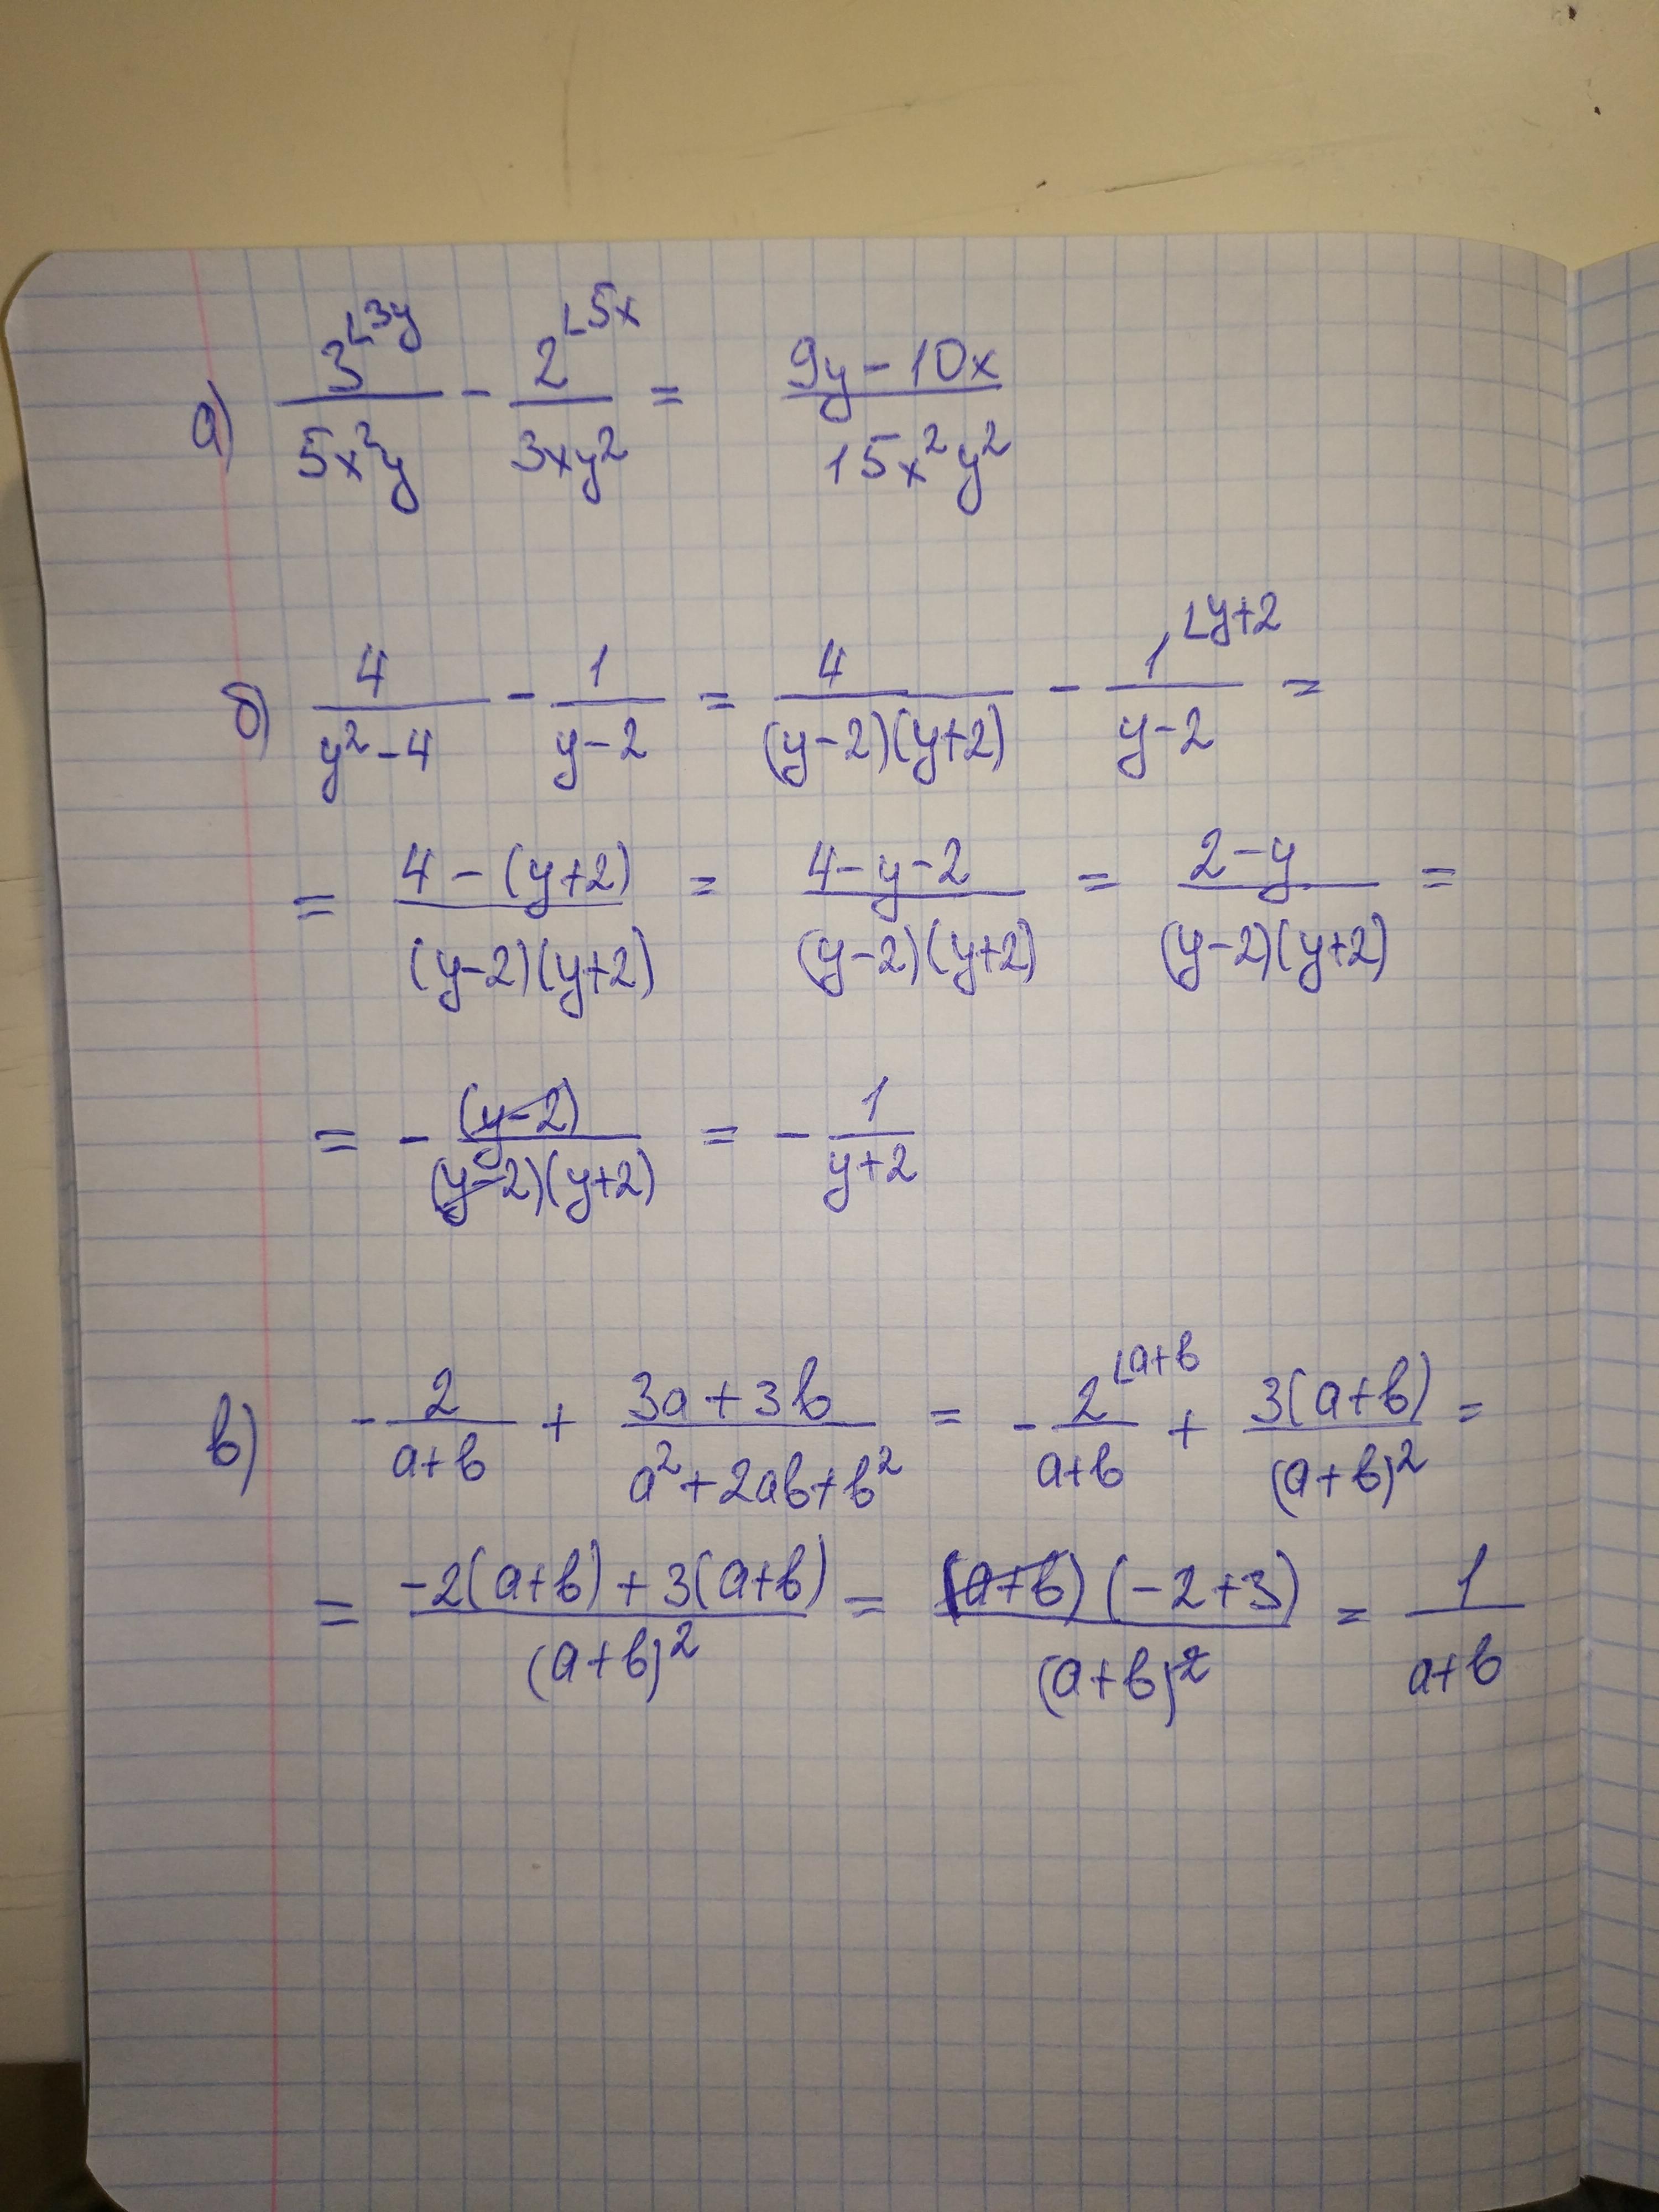 а) 3^{∟3y}/(5x²y) - 2^{∟5x}/(3xy²) = (9y-10x)/(15x²y²)
б) 4/(y²-4) - 1/(y-2) = 4/((y-2)(y+2)) - 1^{∟y+2}/(y-2) =
= (4-(y+2))/((y-2)(y+2)) = (4-y-2)/((y-2)(y+2)) = (2-y)/((y-2)(y+2)) =
= - (y-2)/((y-2)(y+2)) = - 1/(y+2)
в) - 2/(a+b) + (3a+3b)/(a²+2ab+b²) = - 2^{∟a+b}/(a+b) + 3(a+b)/(a+b)² =
= (-2(a+b)+3(a+b))/(a+b)² = (a+b)(-2+3)/(a+b)² = 1/(a+b)